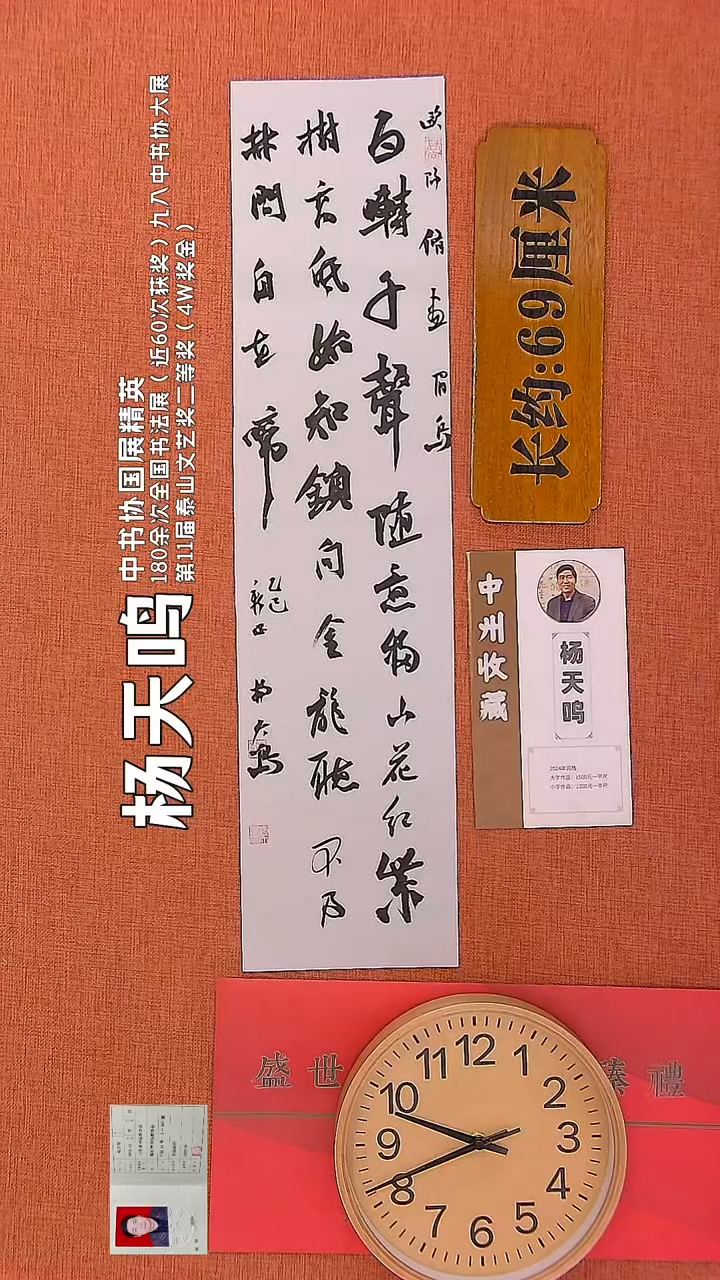 杨天鸣
中书协国展精英
180余次全国书法展（近60次获奖）九八中书协大展
第11届泰山文艺奖二等奖（4W奖金）
欧阳脩画眉鸟
百囀千聲随意移山花红紫
樹高低始知鎖向金籠聽不及
林間自在啼
乙巳
新正
杨天鸣
长约:69厘米
中州收藏
杨天鸣
2024年润格
大字作品：1500元一平尺
小字作品：2300元一平尺
盛世
禮
12
1
2
3
4
5
6
7
8
9
10
11